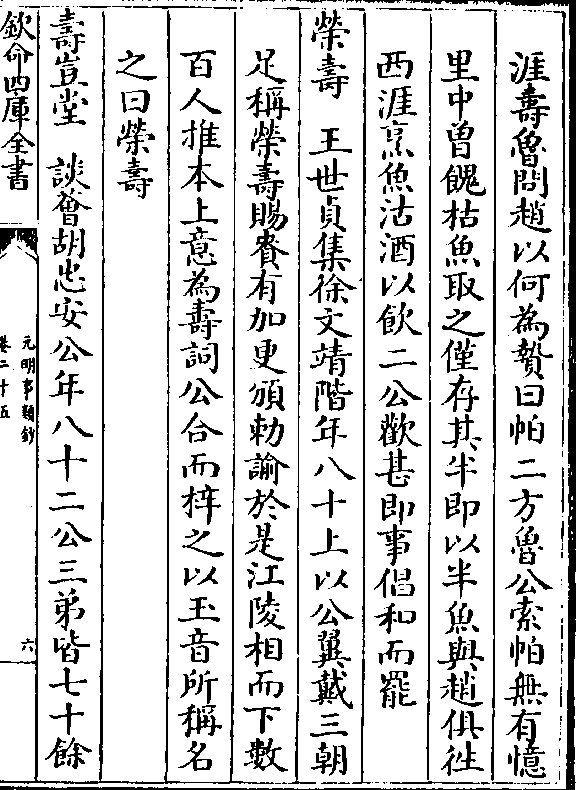 涯壽魯問趙以何為贄曰帕二方魯公索帕無有憶
里中曾餽枯魚取之僅存其半即以半魚與趙俱徃
西涯烹魚沽酒以飲二公歡甚即事倡和而罷
榮壽　王世貞集徐文靖階年八十上以公翼戴三朝
足稱榮壽賜賚有加更頒勅諭於是江陵相而下數
百人推本上意為壽詞公合而梓之以玉音所稱名
之曰榮壽
壽豈堂　談薈胡忠安公年八十二公三弟皆七十餘
欽命四庫全書
元明事類鈔
卷二十五
六